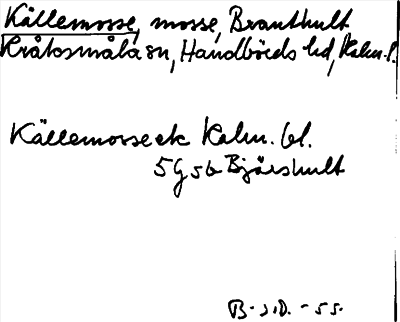 Källemosse, mosse, Branthult
Kråksmåla sn, Handbörds hd, Kalm. l.
Källemosse ek Kalm. bl.
5G 5b Bjärshult
B. J.D. - 55.